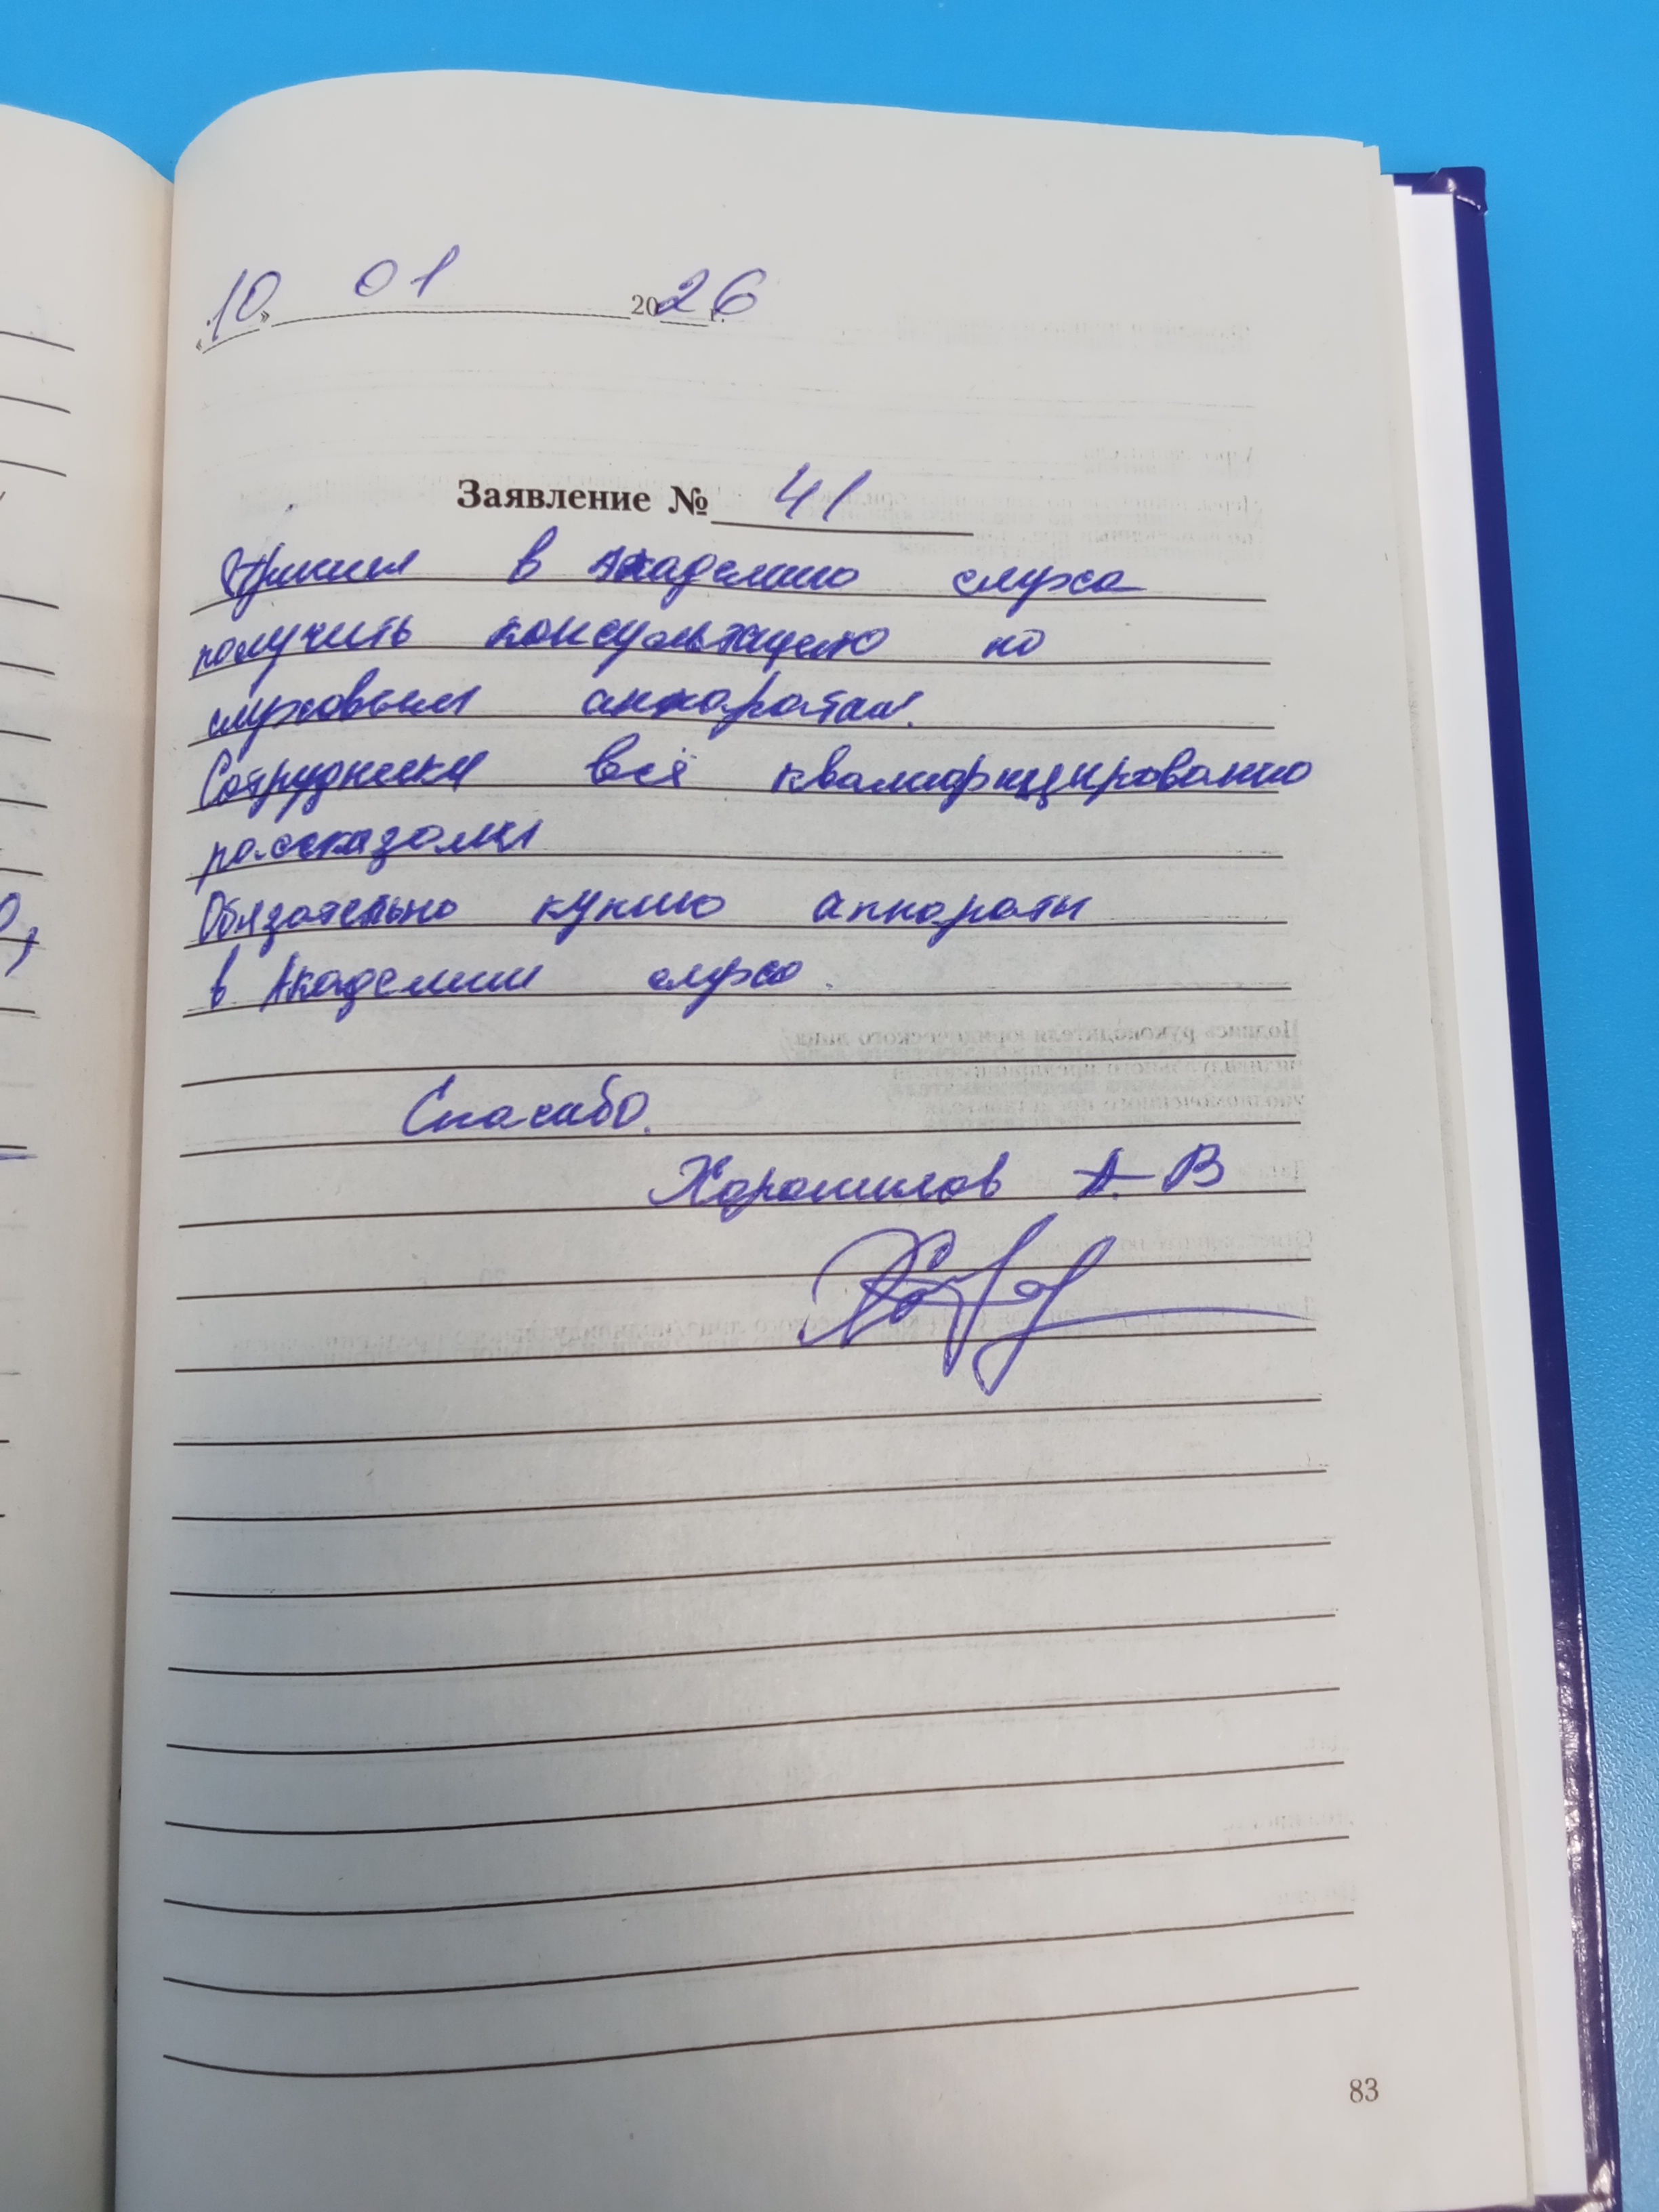 «10» 01 2026 г.
Заявление № 41
Пришел в Академию слуха
получить консультацию по
слуховым аппаратам.
Сотрудники всё квалифицировано
рассказали
Обязательно куплю аппараты
в Академии слуха.
Спасибо.
Хорошилов А. В
83